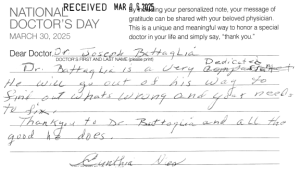 NATIONAL
DOCTOR'S DAY
MARCH 30, 2025
RECEIVED MAR 2025
By sharing your personalized note, your message of
gratitude can be shared with your beloved physician.
This is a unique and meaningful way to honor a special
doctor in your life and simply say, "thank you."
Dear Doctor, Dr Joseph Battaglia
DOCTOR'S FIRST AND LAST NAME (please print)
Dedicated
Dr Battaglia is a very
He will go out of his way to
find out whats wrong and your needs
to fix.
Thankyu to Dr Battaglia and all the
good he does.
Cynthia